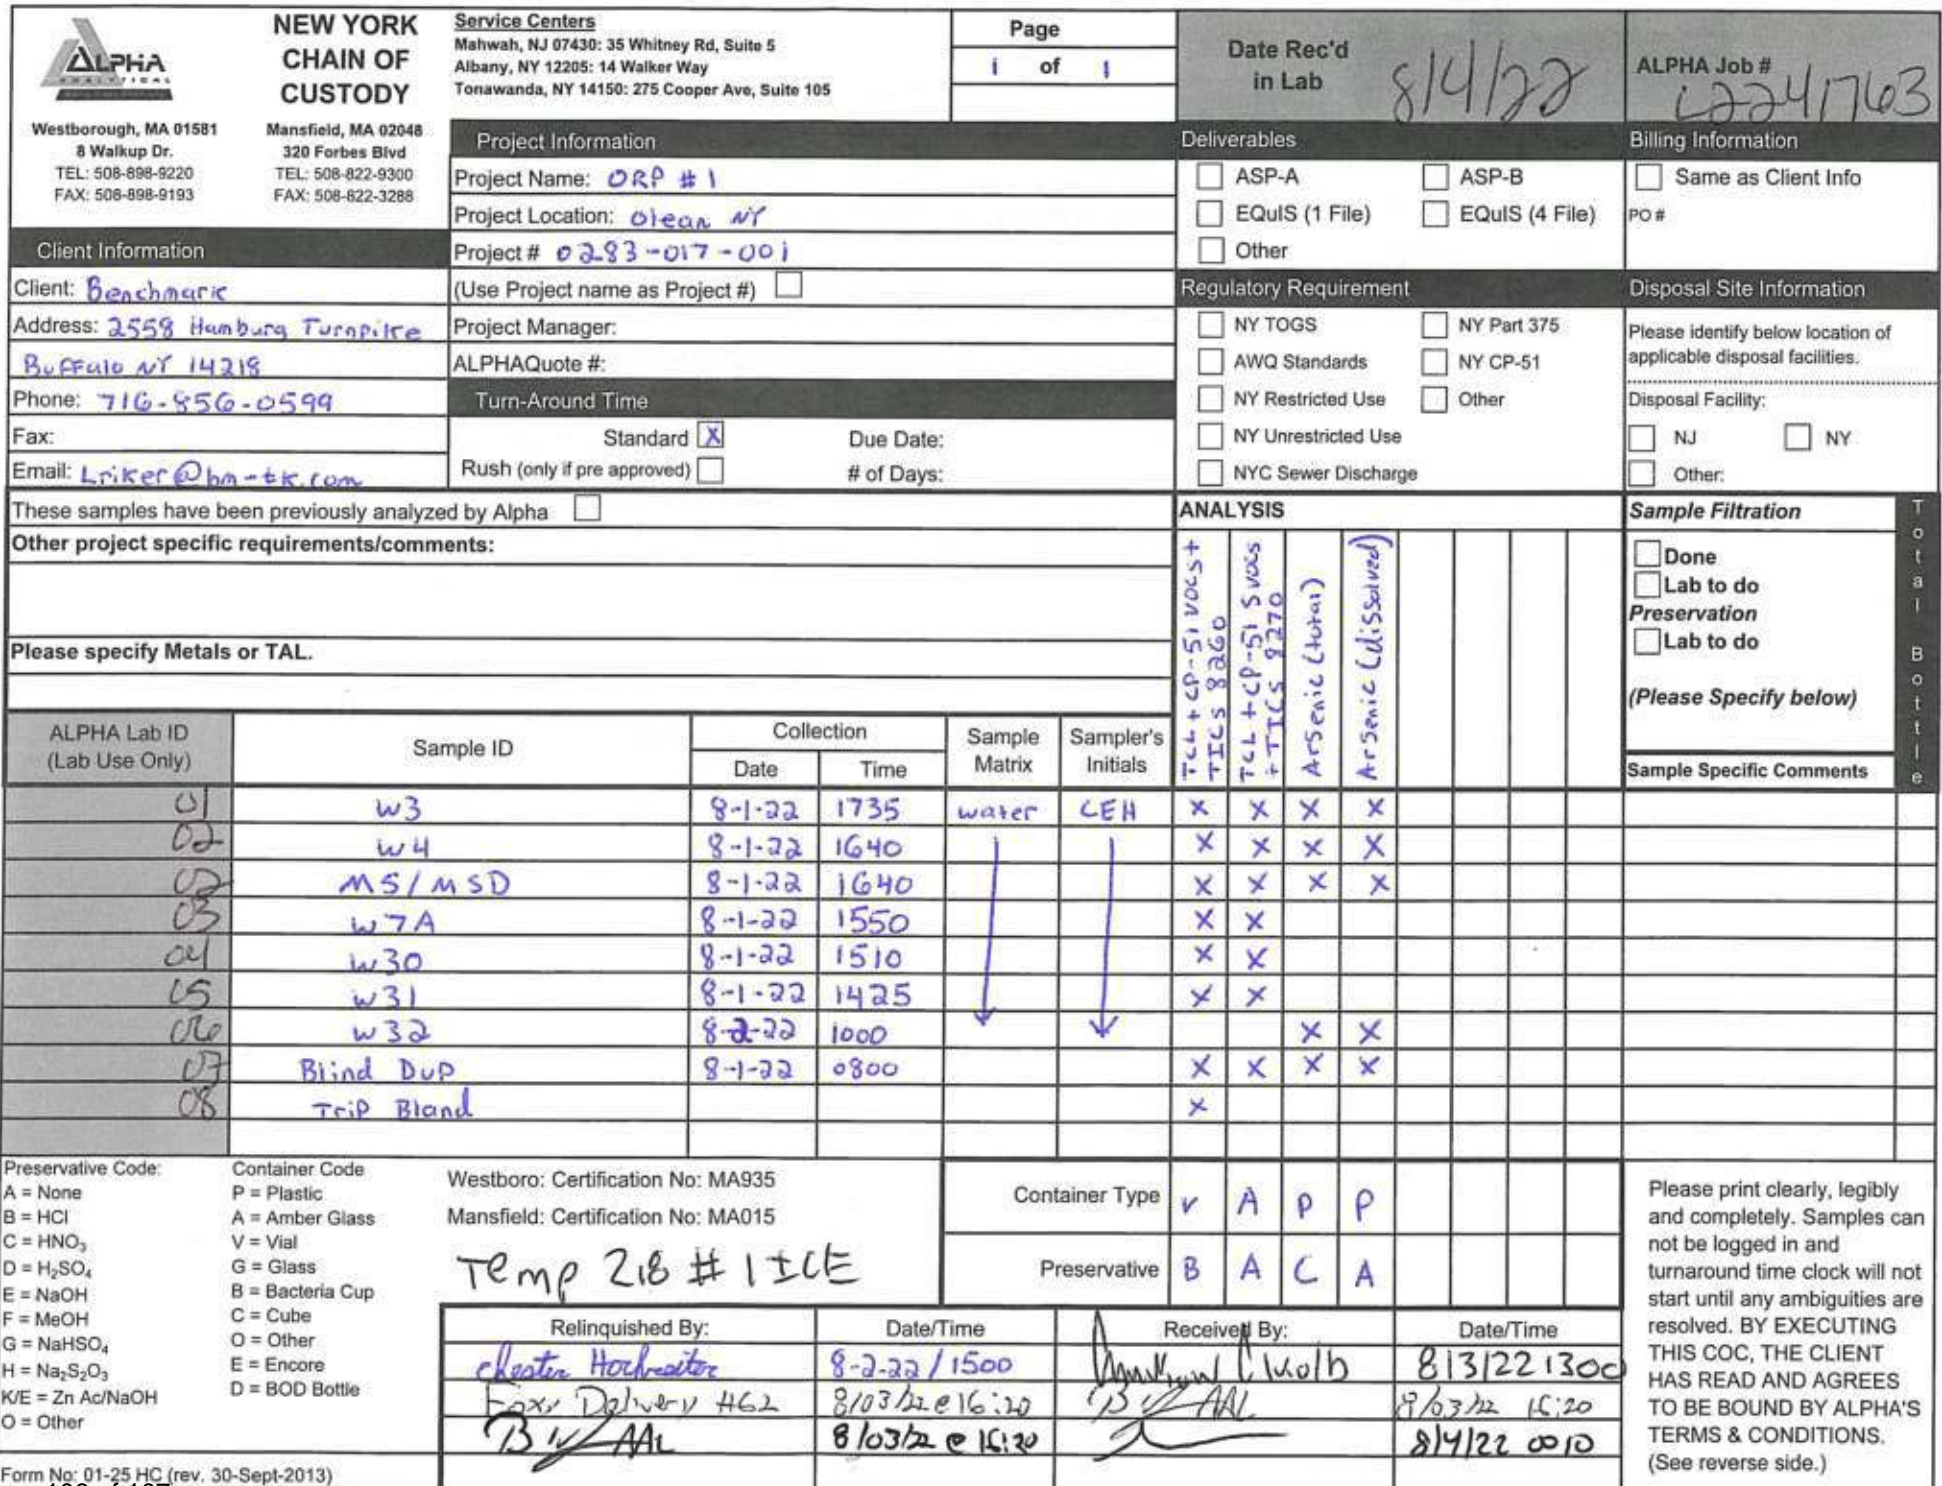 ALPHA
ANALYTICAL
NEW YORK
CHAIN OF
CUSTODY
Westborough, MA 01581
8 Walkup Dr.
TEL: 508-898-9220
FAX: 508-898-9193
Mansfield, MA 02048
320 Forbes Blvd
TEL: 508-822-9300
FAX: 508-822-3288
Service Centers
Mahwah, NJ 07430: 35 Whitney Rd, Suite 5
Albany, NY 12205: 14 Walker Way
Tonawanda, NY 14150: 275 Cooper Ave, Suite 105
Page
1 of 1
Date Rec'd
in Lab
8/4/22
ALPHA Job #
L2241763
Project Information
Project Name: ORP #1
Project Location: Olean NY
Project # 0283-017-001
(Use Project name as Project #)
Project Manager:
ALPHAQuote #:
Turn-Around Time
Standard X Due Date:
Rush (only if pre approved) # of Days:
Client Information
Client: Benchmark
Address: 2558 Hamburg Turnpike
Buffalo NY 14218
Phone: 716-856-0599
Fax:
Email: Lriker@bm-tk.com
Deliverables
ASP-A ASP-B
EQuIS (1 File) EQuIS (4 File)
Other
Regulatory Requirement
NY TOGS NY Part 375
AWQ Standards NY CP-51
NY Restricted Use Other
NY Unrestricted Use
NYC Sewer Discharge
Billing Information
Same as Client Info
PO #
Disposal Site Information
Please identify below location of
applicable disposal facilities.
Disposal Facility:
NJ NY
Other:
These samples have been previously analyzed by Alpha
Other project specific requirements/comments:
Please specify Metals or TAL.
ANALYSIS
TCL + CP-51 VOCs +
TICS 8260
TCL + CP-51 SVOCs
+ TICS 8270
Arsenic (total)
Arsenic (dissolved)
Sample Filtration
Done
Lab to do
Preservation
Lab to do
(Please Specify below)
Total Bottle
ALPHA Lab ID
(Lab Use Only)
Sample ID
Collection
Date Time
Sample
Matrix
Sampler's
Initials
Sample Specific Comments
01 W3 8-1-22 1735 water CEH X X X X
02 W4 8-1-22 1640 X X X X
02 MS/MSD 8-1-22 1640 X X X X
03 W7A 8-1-22 1550 X X
04 W30 8-1-22 1510 X X
05 W31 8-1-22 1425 X X
06 W32 8-2-22 1000 X X
07 Blind Dup 8-1-22 0800 X X X X
08 Trip Bland X
Preservative Code:
A = None
B = HCl
C = HNO₃
D = H₂SO₄
E = NaOH
F = MeOH
G = NaHSO₄
H = Na₂S₂O₃
K/E = Zn Ac/NaOH
O = Other
Container Code
P = Plastic
A = Amber Glass
V = Vial
G = Glass
B = Bacteria Cup
C = Cube
O = Other
E = Encore
D = BOD Bottle
Westboro: Certification No: MA935
Mansfield: Certification No: MA015
Temp 2.8 #1 ICE
Container Type V A P P
Preservative B A C A
Relinquished By: Date/Time Received By: Date/Time
Chester Hochreiter 8-2-22 / 1500 Kolb 8/3/22 1300
Delivery #62 8/03/22 @ 16:20 AAL 8/03/22 16:20
AAL 8/03/22 @ 16:20 8/4/22 0010
Please print clearly, legibly
and completely. Samples can
not be logged in and
turnaround time clock will not
start until any ambiguities are
resolved. BY EXECUTING
THIS COC, THE CLIENT
HAS READ AND AGREES
TO BE BOUND BY ALPHA'S
TERMS & CONDITIONS.
(See reverse side.)
Form No: 01-25 HC (rev. 30-Sept-2013)